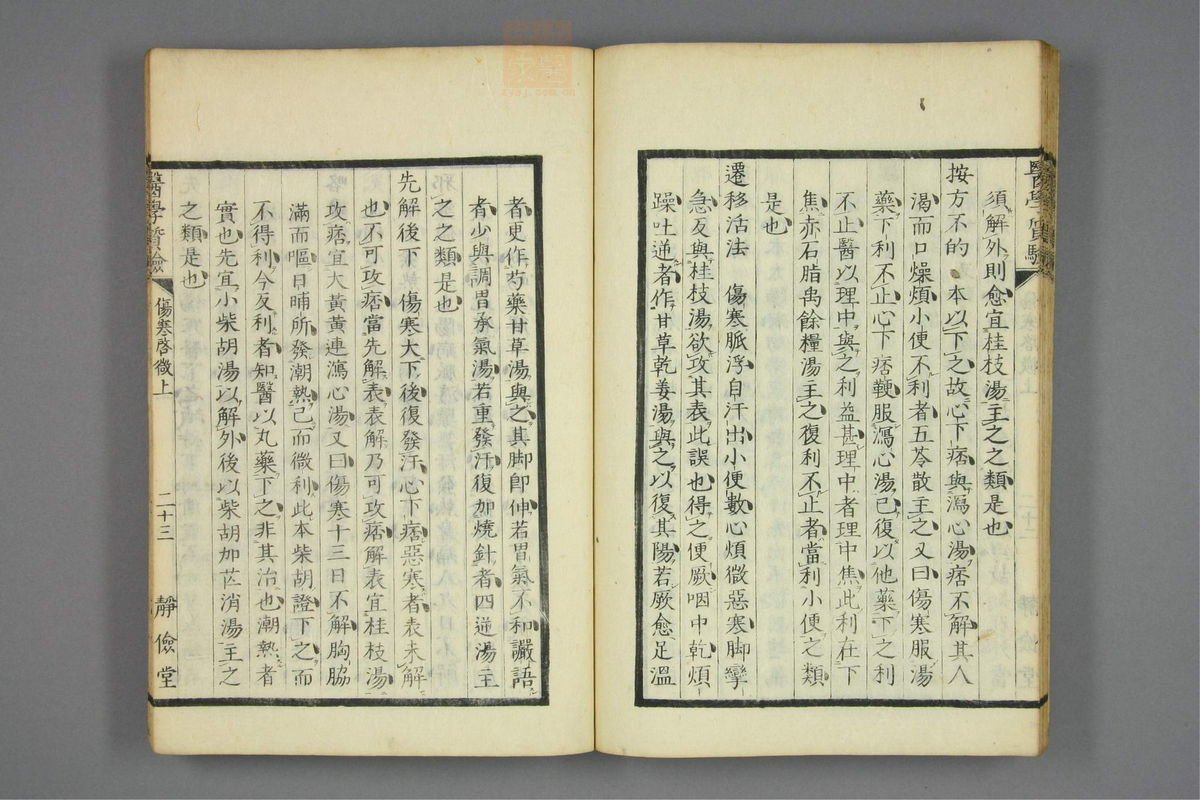 須解外則愈宜桂枝湯主之之類是也
按方不的　本以下之故心下痞與瀉心湯痞不解其人
渴而口燥煩小便不利者五苓散主之又曰傷寒服湯
藥下利不止心下痞鞕服瀉心湯已復以他藥下之利
不止醫以理中與之利益甚理中者理中焦此利在下
焦赤石脂禹餘糧湯主之復利不止者當利小便之類
是也
遷移活法　傷寒脈浮自汗出小便數心煩微惡寒脚攣
急反與桂枝湯欲攻其表此誤也得之便厥咽中乾煩
躁吐逆者作甘草乾姜湯與之以復其陽若厥愈足溫
者更作芍藥甘草湯與之其脚卽伸若胃氣不和讝語
者少與調胃承氣湯若重發汗復加燒針者四逆湯主
之之類是也
先解後下　傷寒大下後復發汗心下痞惡寒者表未解
也不可攻痞當先解表表解乃可攻痞解表宜桂枝湯
攻痞宜大黃黃連瀉心湯又曰傷寒十三日不解胸脇
滿而嘔日晡所發潮熱已而微利此本柴胡證下之而
不得利今反利者知醫以丸藥下之非其治也潮熱者
實也先宜小柴胡湯以解外後以柴胡加芒消湯主之
之類是也
傷寒啓微上
二十三
靜儉堂